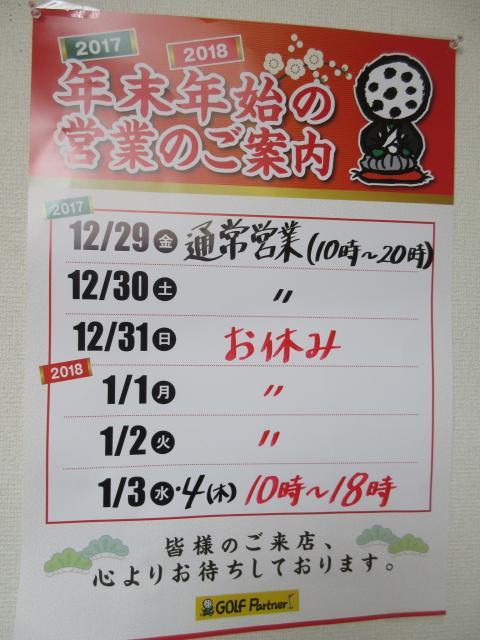 2017 2018
年末年始の
営業のご案内
2017
12/29 金 通常営業(10時～20時)
12/30 土 〃
12/31 日 お休み
2018
1/1 月 〃
1/2 火 〃
1/3 水・4(木) 10時～18時
皆様のご来店、
心よりお待ちしております。
GOLF Partner